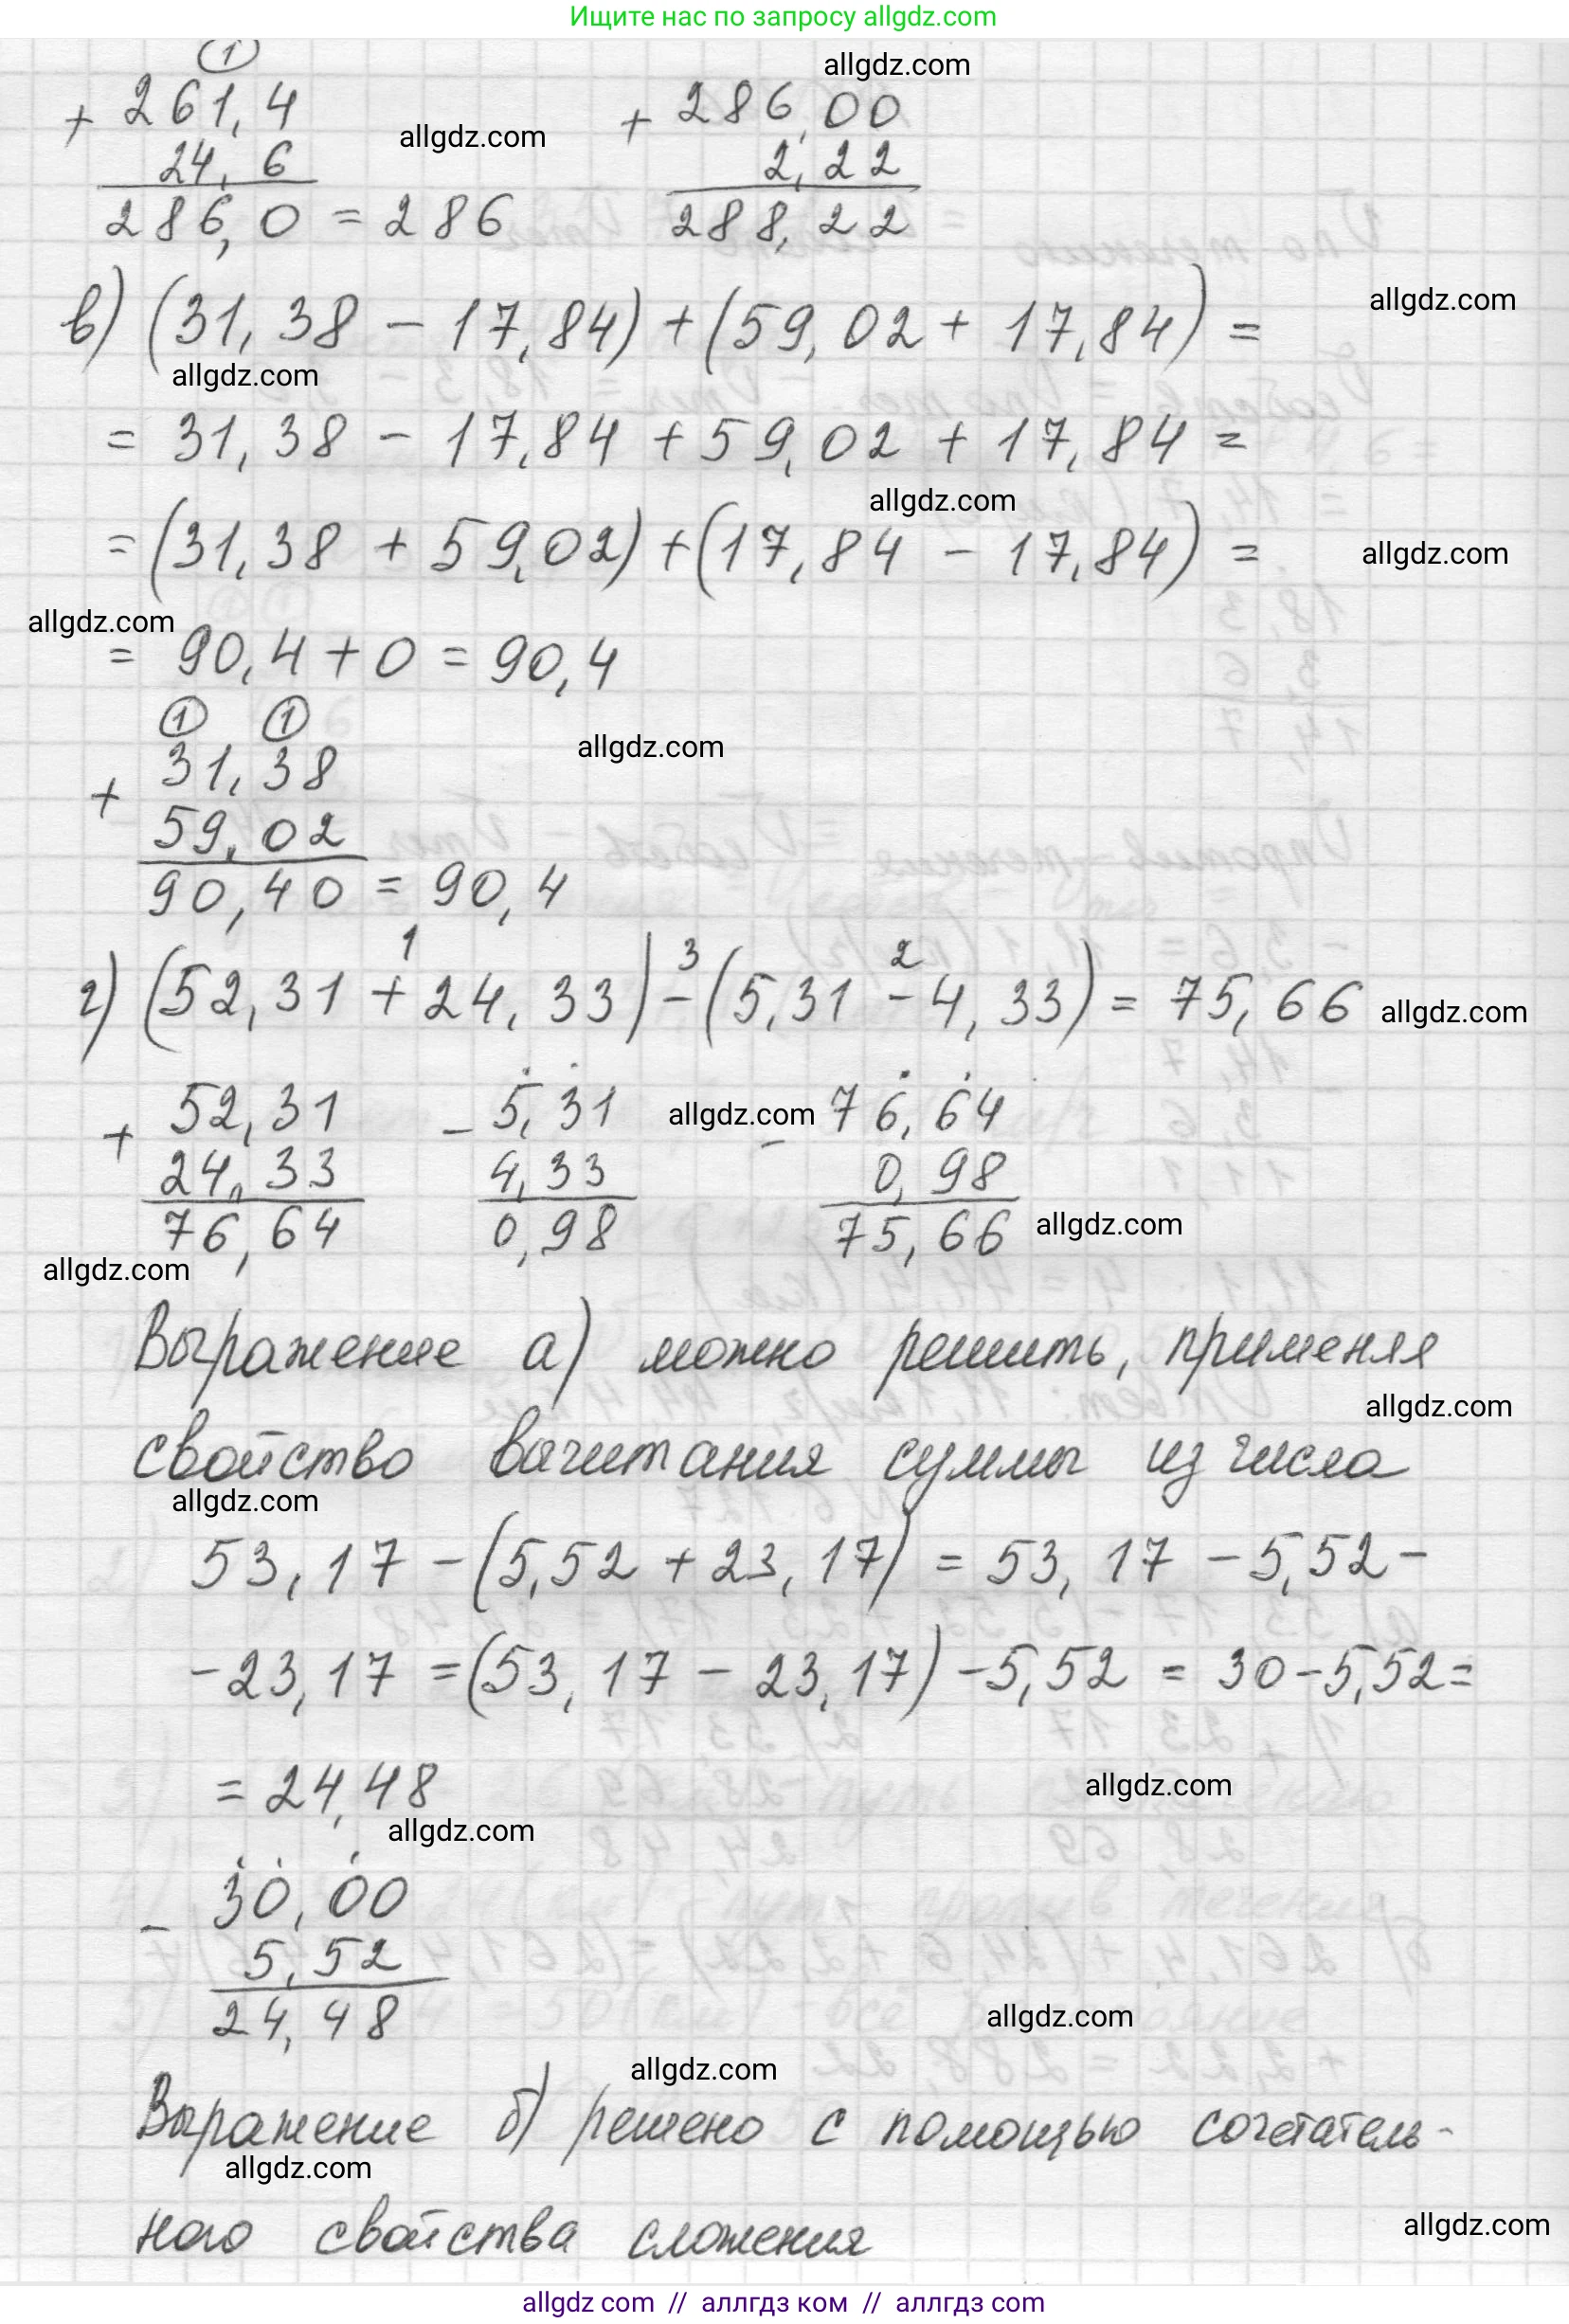 Ищите нас по запросу allgdz.com
①
allgdz.com
+ 261,4
+ 286,00
allgdz.com
24,6
2,22
286,0 = 286
288,22
в) (31,38 - 17,84) + (59,02 + 17,84) =
allgdz.com
allgdz.com
= 31,38 - 17,84 + 59,02 + 17,84 =
allgdz.com
= (31,38 + 59,02) + (17,84 - 17,84) =
allgdz.com
allgdz.com
= 90,4 + 0 = 90,4
① ①
allgdz.com
+ 31,38
59,02
90,40 = 90,4
1 3 2
г) (52,31 + 24,33) - (5,31 - 4,33) = 75,66
allgdz.com
+ 52,31
- 5,31
allgdz.com
- 76,64
24,33
4,33
0,98
76,64
0,98
75,66
allgdz.com
allgdz.com
Выражение а) можно решить, применяя
allgdz.com
свойство вычитания суммы из числа
allgdz.com
53,17 - (5,52 + 23,17) = 53,17 - 5,52 -
- 23,17 = (53,17 - 23,17) - 5,52 = 30 - 5,52 =
= 24,48
allgdz.com
allgdz.com
- 30,00
5,52
24,48
allgdz.com
allgdz.com
Выражение б) решено с помощью сочетатель-
allgdz.com
ного свойства сложения
allgdz.com
allgdz.com // аллгдз ком // аллгдз com